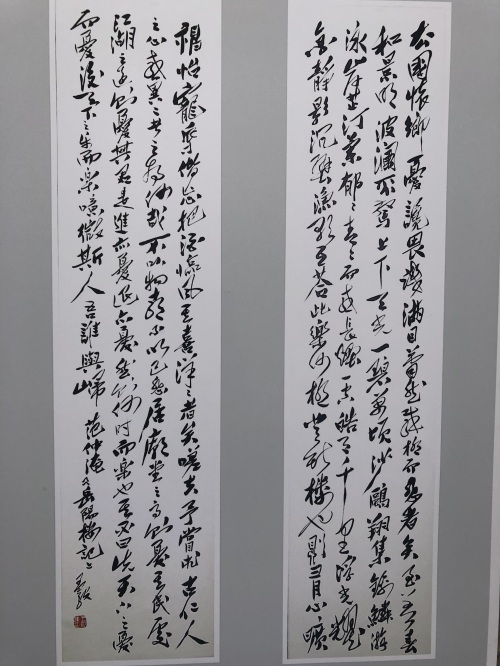 去國懷鄉憂讒畏譏滿目蕭然感極而悲者矣至若春
和景明波瀾不驚上下天光一碧萬頃沙鷗翔集錦鱗游
泳岸芷汀蘭郁々青々而或長煙一空皓月千里浮光耀
金靜影沉璧漁歌互答此樂何極登斯樓也則有心曠
神怡寵辱偕忘把酒臨風其喜洋々者矣嗟夫予嘗求古仁人
之心或異二者之為何哉不以物喜不以己悲居廟堂之高則憂其民處
江湖之遠則憂其君是進亦憂退亦憂然則何時而樂也其必曰先天下之憂
而憂後天下之樂而樂噫微斯人吾誰與歸 范仲淹文岳陽樓記